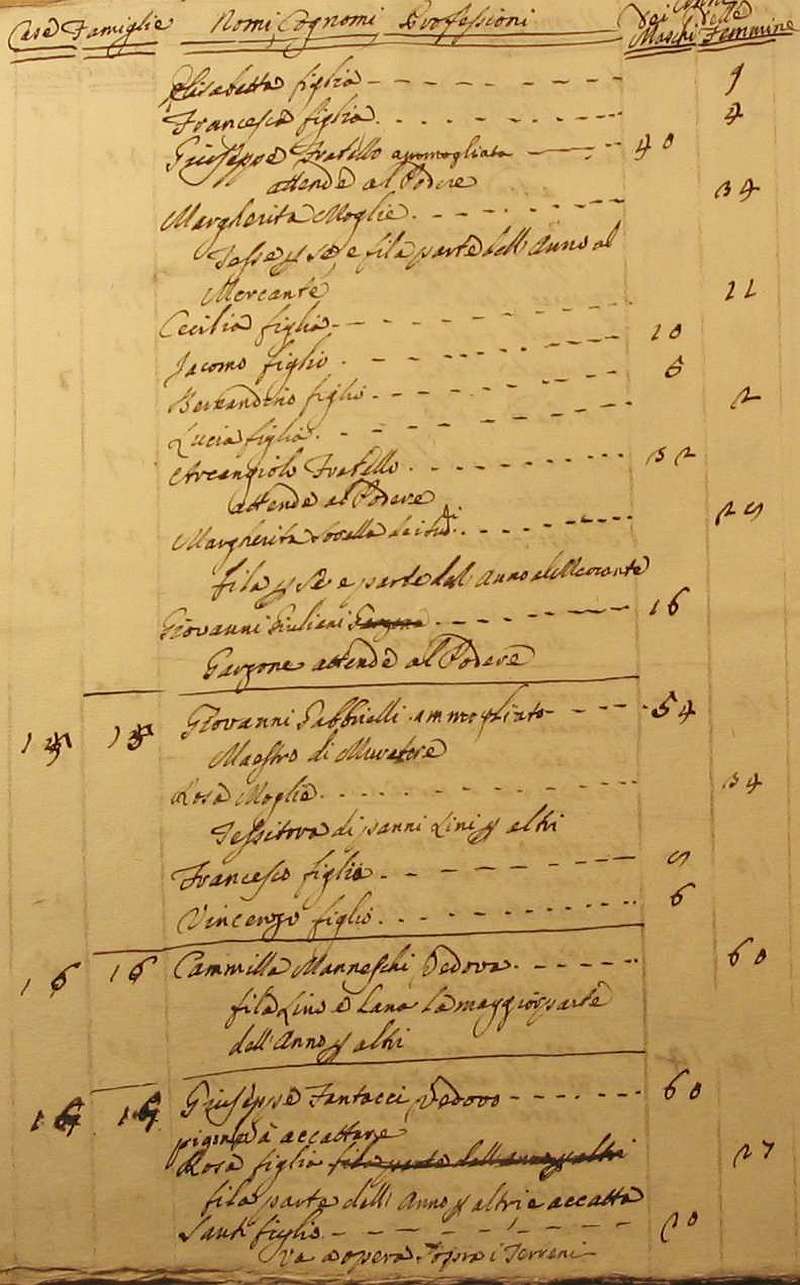 Case Famiglie Nomi, Cognomi, Professioni Maschi Femmine
Elisabetta figlia 9
Francesca figlia 4
Giuseppe Fratello ammogliato 40
attende al Podere
Margherita Moglie 34
Tesse p se, e fila parte dell'Anno al
Mercante
Cecilia figlia 11
Jacomo figlio 10
Bernardino figlio 6
Lucia figlia 2
Arcangiolo Fratello 32
attende al Podere
Margherita Sorella dei sudi 29
fila p se e parte dell'Anno al Mercante
Giovanni Giuliani Garzone 16
Garzone attende al Podere
15 15 Giovanni Gabbrielli ammogliato 54
Maestro di Muratore
Rosa Moglie 34
Tessitora di panni Lini p altri
Francesco figlio 9
Vincenzo figlio 6
16 16 Cammilla Manneschi Vedova 60
fila Lino e Lana la maggior parte
dell'Anno p altri
Giuseppe Fantacci Vedovo 60
à accattare
Rosa figlia fila parte dell'anno p altri 27
fila parte dell'Anno p altri e accatta
Santi figlio 20
va a opera sopra i Terreni